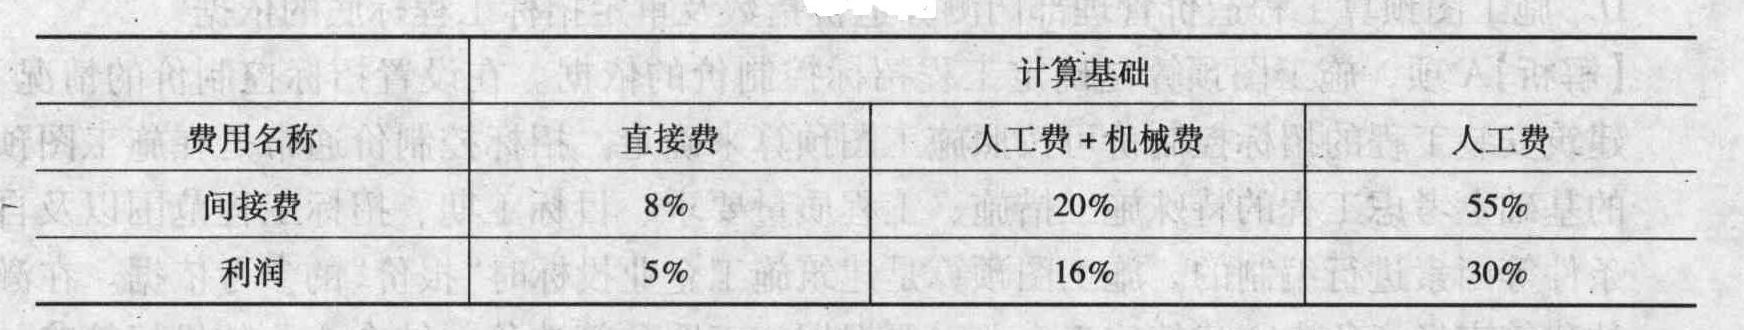 计算基础
费用名称 直接费 人工费+机械费 人工费
间接费 8% 20% 55%
利润 5% 16% 30%